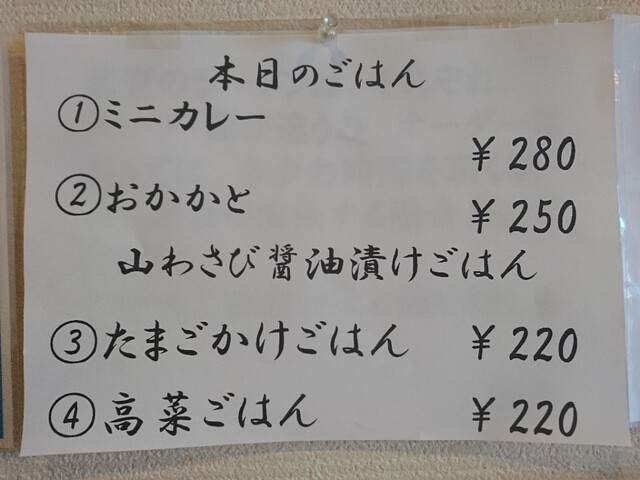 本日のごはん
①ミニカレー
¥280
②おかかと
¥250
山わさび醤油漬けごはん
③たまごかけごはん ¥220
④高菜ごはん ¥220